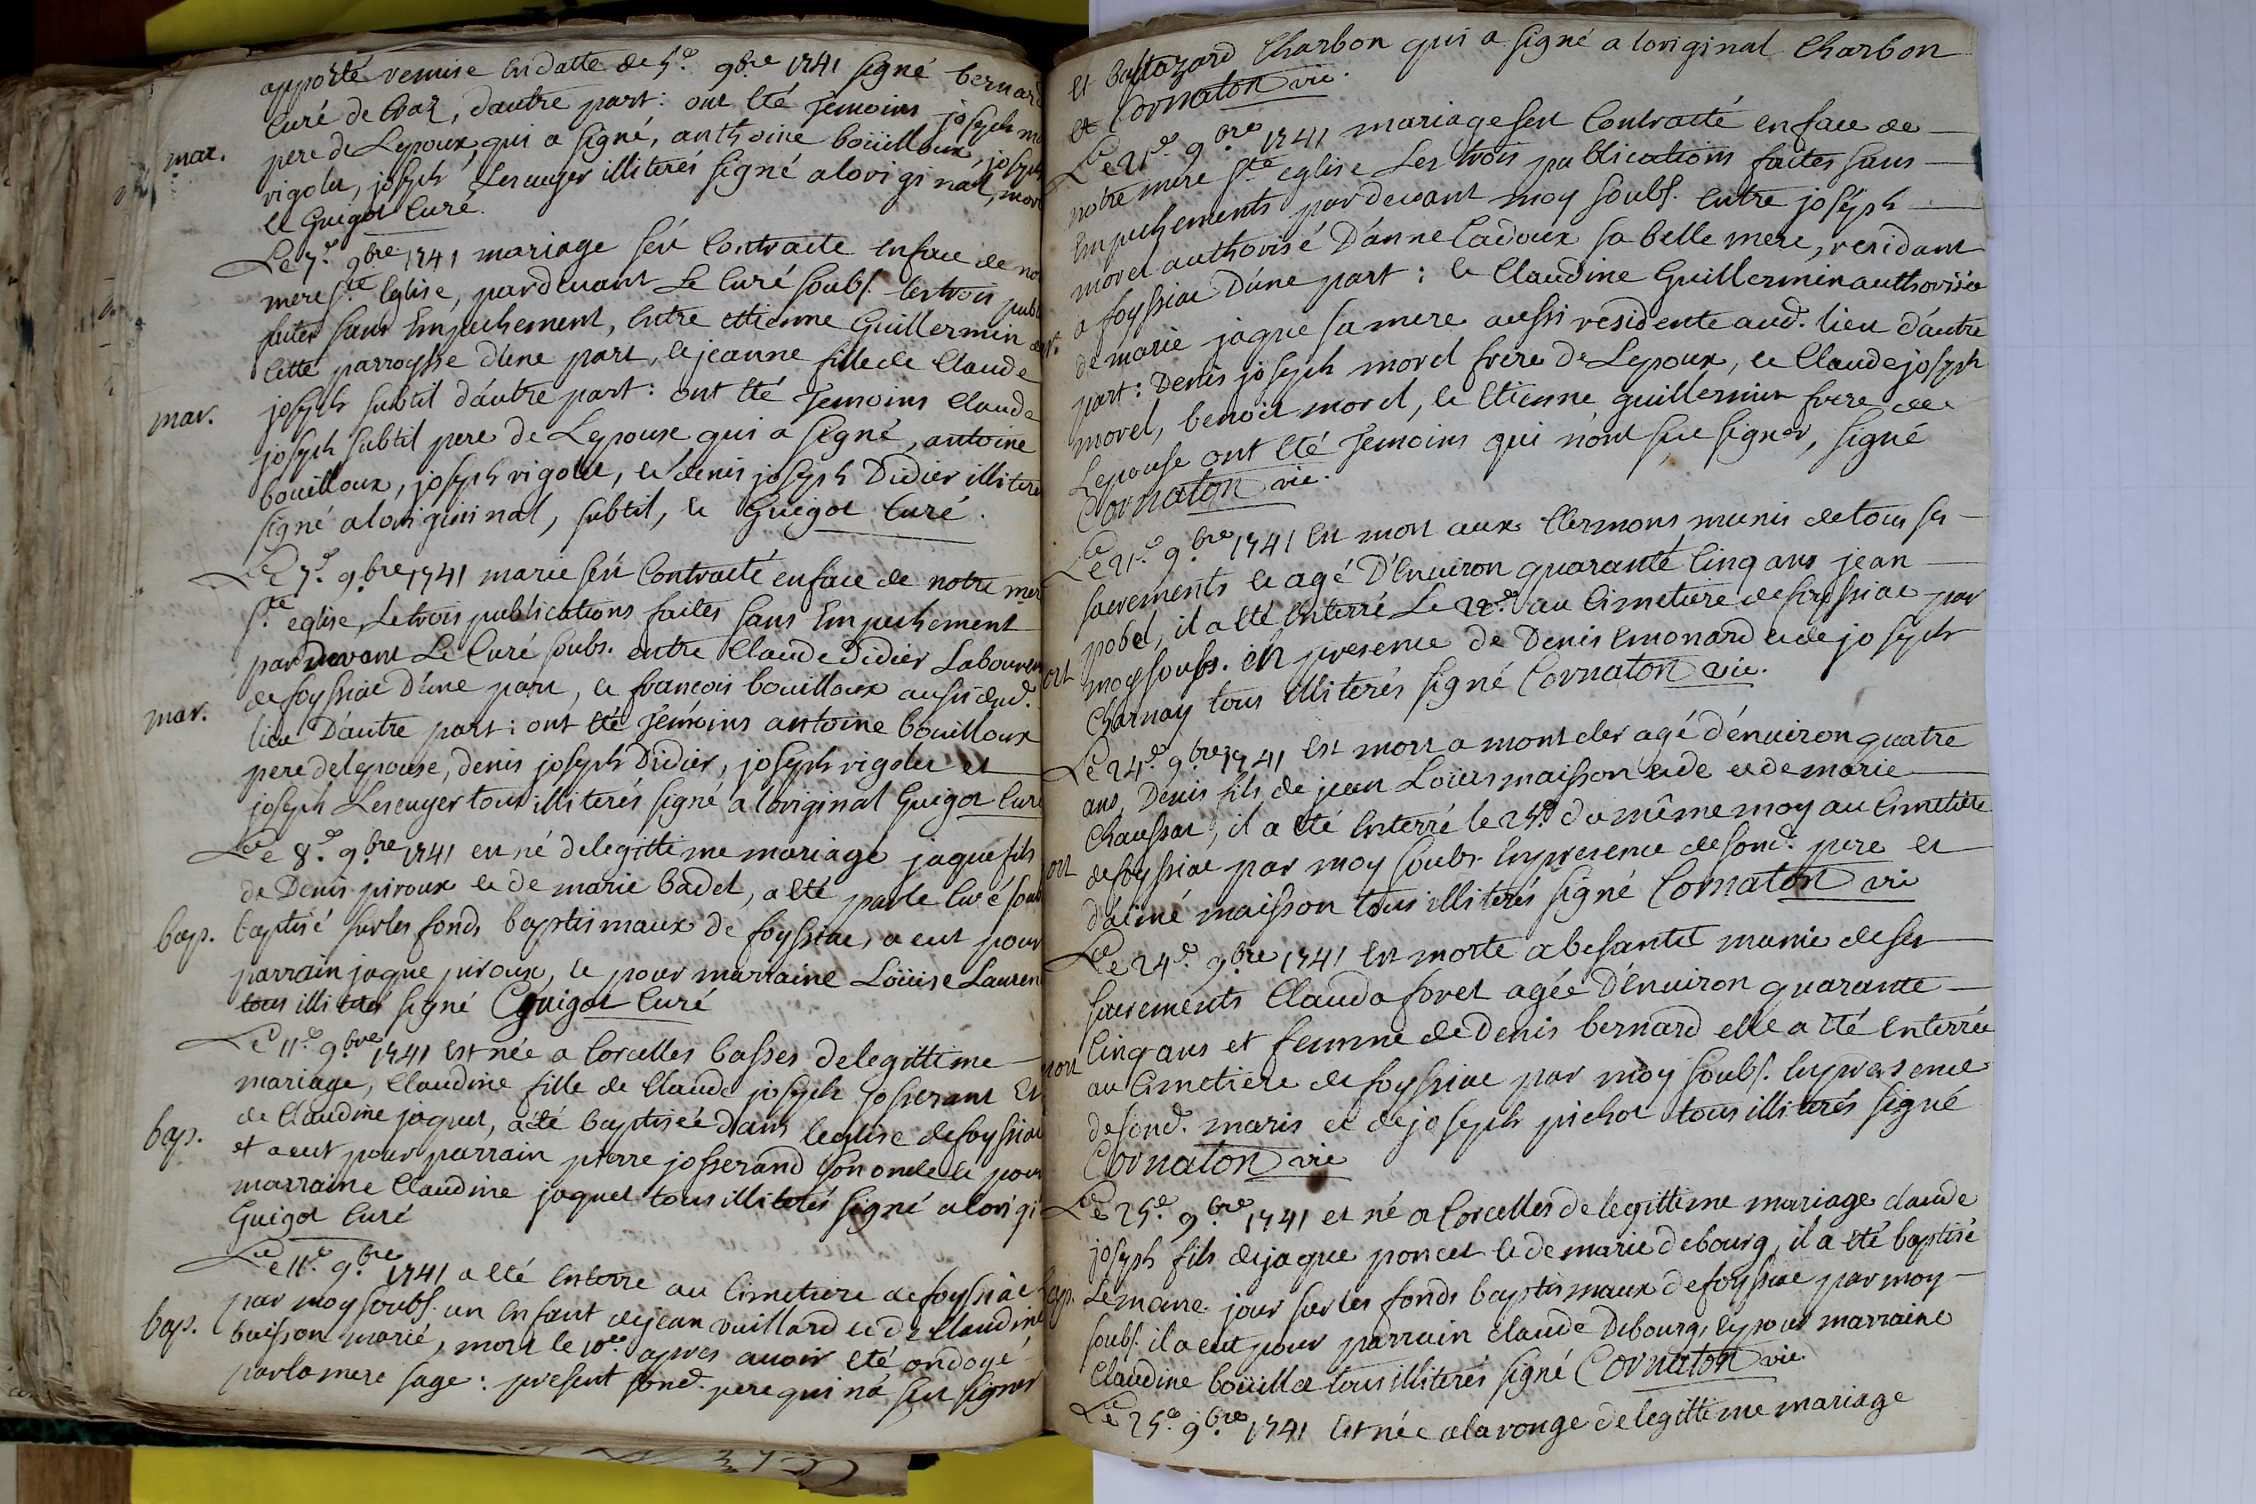 apporté remise en datte de 5e. 9bre 1741 signé bernard
Curé de Craz, d'autre part: ont été Temoins joseph mo
mar. pere de Lepoux qui a signé, anthoine boüilloux, joseph
rigolet, joseph Lescuyer illiterés signé a loriginal, mor
et Guigot Curé.
Le 7e. 9bre 1741 mariage feü Contracte en face de no
mere ste Eglise, pardevant Le Curé soubs. les trois publ
faites sans Empechement, Entre ettienne Guillermin de
Cette parroysse d'une part, et jeanne fille de Claude
mar. joseph subtil d'autre part: ont été Temoins Claude
joseph subtil pere de Lepouse qui a signé, antoine
bouilloux, joseph rigolet, et denis joseph Didier illiteré
signé a loriginal, subtil, et Guigot Curé.
Le 7e. 9bre 1741 marié feü Contracté en face de notre mer
ste eglise Le trois publications faites sans Empechement
par devant Le Curé soubs. entre Claude Didier Laboureur
de foyssiac D'une part, et francois bouilloux aussi dud.
mar. lieu D'autre part: ont été Temoins antoine boüilloux
pere de lepouse, denis joseph Didier, joseph rigolet et
joseph Lescuyer tous illiterés signé a loriginal Guigot Curé
Le 8e. 9bre 1741 est né de legittime mariage jaque fils
de Denis piroux et de marie badel, a été par le Curé soub
bap. baptisé sur les fonds baptismaux de foyssiac, a eut pour
parrain jaque piroux, et pour marraine Loüise Lauren
tous illiterés signé Guigot Curé
Le 11e. 9bre 1741 est née a Corcelles basses de legittime
mariage, Claudine fille de Claude joseph josserant Et
de Claudine jaquet, a été baptisée dans leglise de foyssiac
bap. et a eut pour parrain pierre josserand son oncle et pour
marraine Claudine jaquet tous illiterés signé a lorigi
Guigot Curé
Le 11e. 9bre 1741 a été Enterré au Cimetiere de foyssiac
par moy soubs. un Enfant de jean vuillard et de Claudine
bap. buisson marié, mort le 10e. apres avoir été ondoyé
par la mere sage: present sond. pere qui n'a sçu signer
et baltazard Charbon qui a signé a loriginal Charbon
et Cornaton vic.
Le 21e. 9bre 1741 mariage feü Contracté en face de
notre mere ste eglise Les trois publications faites sans
Empechements par devant moy soubs. Entre joseph
morel authorisé D'anne Cadoux sa belle mere, residant
a foyssiac D'une part: et Claudine Guillermin authorisée
de marie jaque sa mere aussi residente aud. lieu d'autre
part: Denis joseph morel frere de Lepoux, et Claude joseph
morel, benoit morel, et Etienne guillermin frere de
Lepouse ont été Temoins qui n'ont sçu signer, signé
Cornaton vic.
Le 21e. 9bre 1741 Est mort aux Clermons munis de tous ses
sacrements et agé D'Environ quarante Cinq ans jean
pobel, il a été Enterré Le 22e. au Cimetiere de foyssiac par
moy soubs. en presence de Denis Emonard et de joseph
Charnay tous illiterés signé Cornaton vic.
Le 24e. 9bre 1741 Est mort a montcler agé d'environ quatre
ans, Denis fils de jean Loüis maisson et de et de marie
Chaussat, il a été Enterré le 25e. du même moy au Cimetiere
de foyssiac par moy soubs. En presence de sond. pere et
d'aimé maisson tous illiterés signé Cornaton vic
Le 24e. 9bre 1741 Est morte a besantet munie de ses
sacrements Clauda foret agée D'Environ quarante
Cinq ans et femme de Denis bernard elle a été Enterrée
au Cimetiere de foyssiac par moy soubs. En presence
de sond. maris et de joseph pichot tous illiterés signé
Cornaton vic
Le 25e. 9bre 1741 est né a Corcelles de legittime mariage claude
joseph fils de jaque poncet et de marie debourg, il a été baptisé
Le meme jour sur les fonds baptismaux de foyssiac par moy
soubs. il a eut pour parrain claude Debourg, et pour marraine
Claudine boüillet tous illiterés signé Cornaton vic
Le 25e. 9bre 1741 Est née a la ronge de legittime mariage